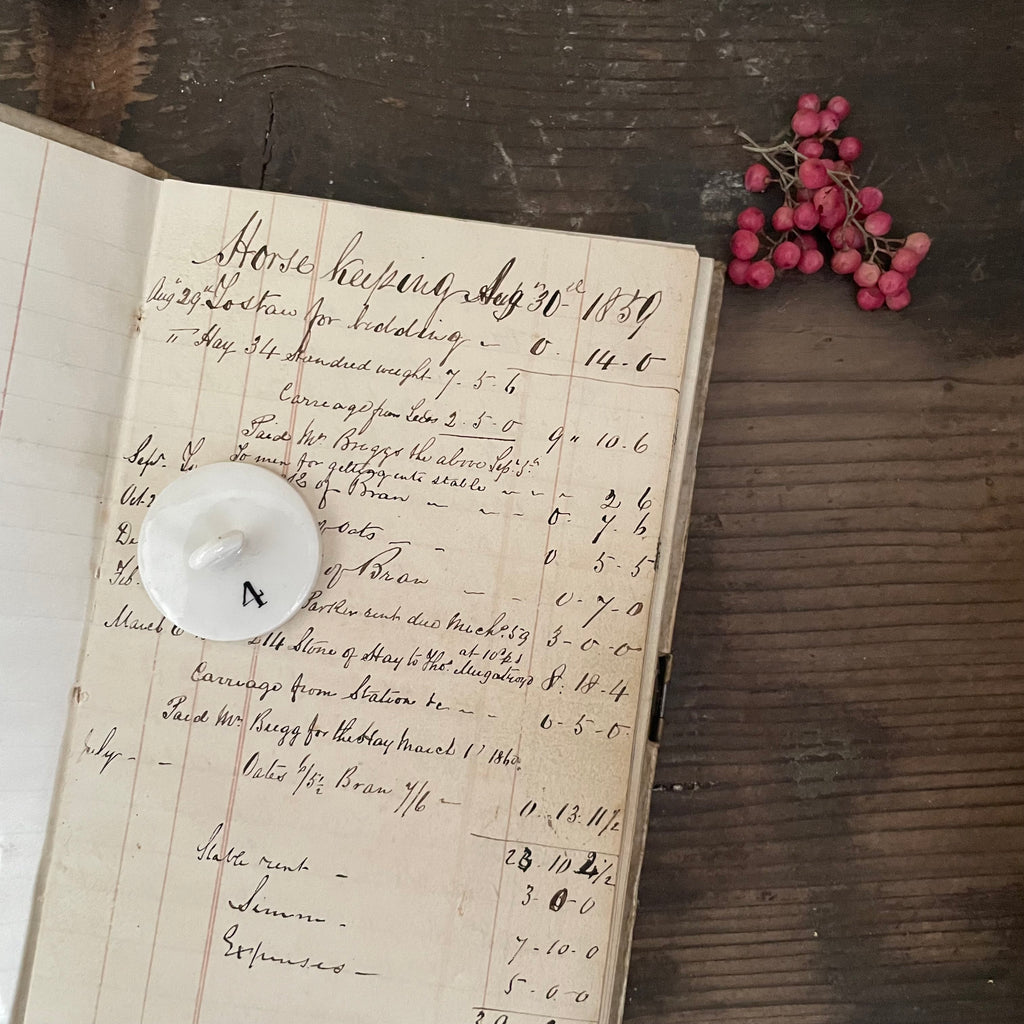 Horse keeping Aug 30 1859
Aug 29 To straw for bidding - 0. 14-0
" Hay 34 Hundred weight 7-5-6
Carreage from Leeds 2-5-0 9 " 10-6
Paid Mr Briggs the above Sepr 5th
Sepr. To men for getting into stable - - - 2 6
Oct of Bran - - - 0. 7-6
De Oats - - 0 5-5
Feb. of Bran - - 0-7-0
Parker rent due Mich. 59 3-0-0
March 6 214 Stone of Hay to Thos. at 10 8:18-4
Carriage from Station - - 0-5-0
Paid Mr Brigg for the Hay March 1860
July - - Oates Bran 7/6 - 0-13-11 1/2
23-10
Stable rent - 3-0-0
7-10-0
Expenses - 5-0-0
4